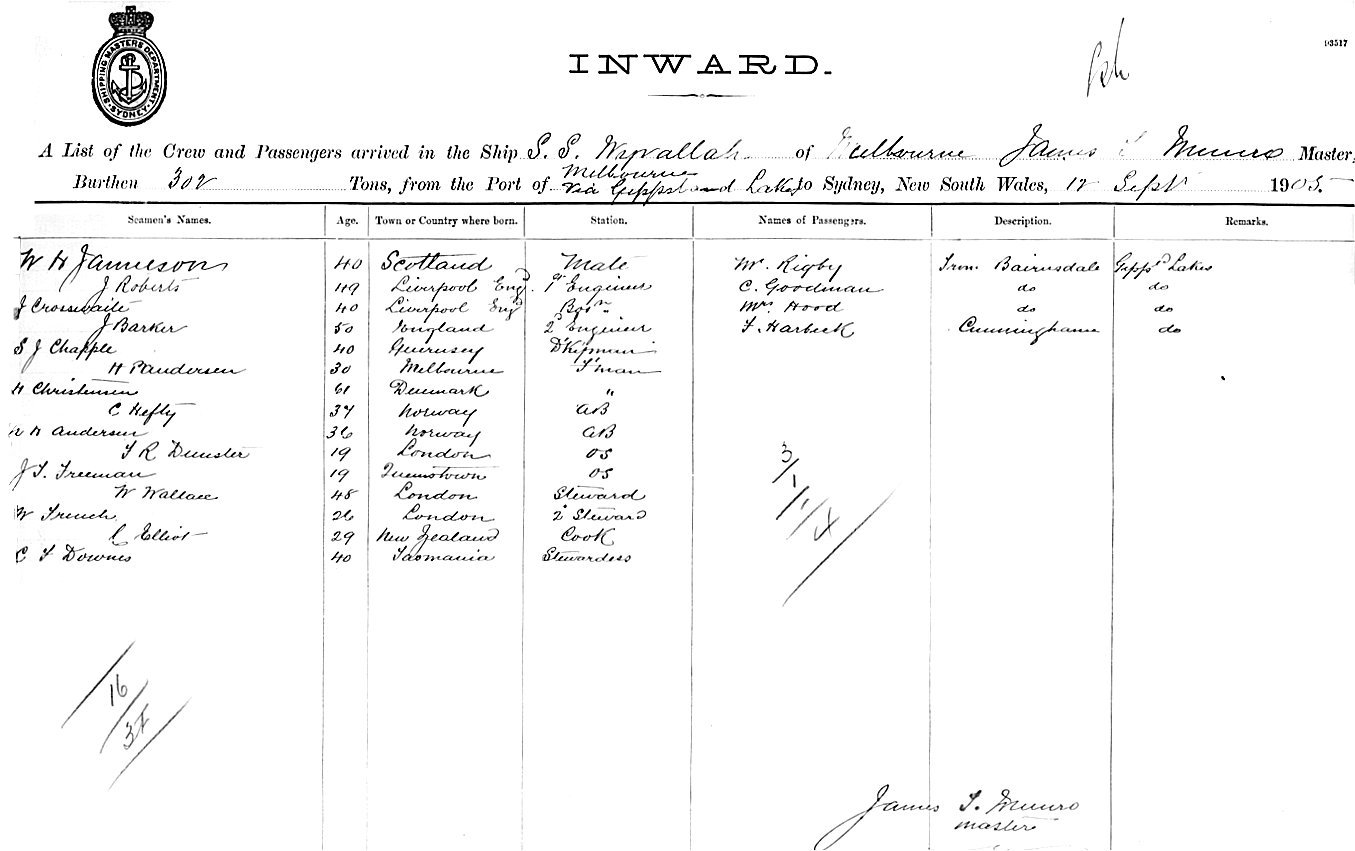 SHIPPING MASTERS DEPARTMENT. SYDNEY
93517
INWARD.
A List of the Crew and Passengers arrived in the Ship S. S. Wyrallah of Melbourne James S Munro Master,
Burthen 302 Tons, from the Port of Melbourne via Gippsland Lakes to Sydney, New South Wales, 12 Sept 1905.
Seamen's Names. Age. Town or Country where born. Station. Names of Passengers. Description. Remarks.
W H Jamieson 40 Scotland Mate Mr. Rigby From Bairnsdale Gippsd Lakes
J Roberts 49 Liverpool Engd. 1st Engineer C. Goodman do do
J Crosswaite 40 Liverpool Engd Bosn Mrs Hood do do
J Barker 50 England 2d Engineer F. Harbeck Cunninghame do
S J Chapple 40 Guernsey D'kyman
H P Andersen 30 Melbourne F'man
H Christensen 61 Denmark "
C Hefty 37 Norway AB
N H Andersen 36 Norway AB
F R Dunster 19 London OS
J T. Freeman 19 Queenstown OS
W Wallace 48 London Steward
W French 26 London 2d Steward
C Elliot 29 New Zealand Cook
C F Downes 40 Tasmania Stewardess
3/1/1/4
16/34
James S. Munro
master